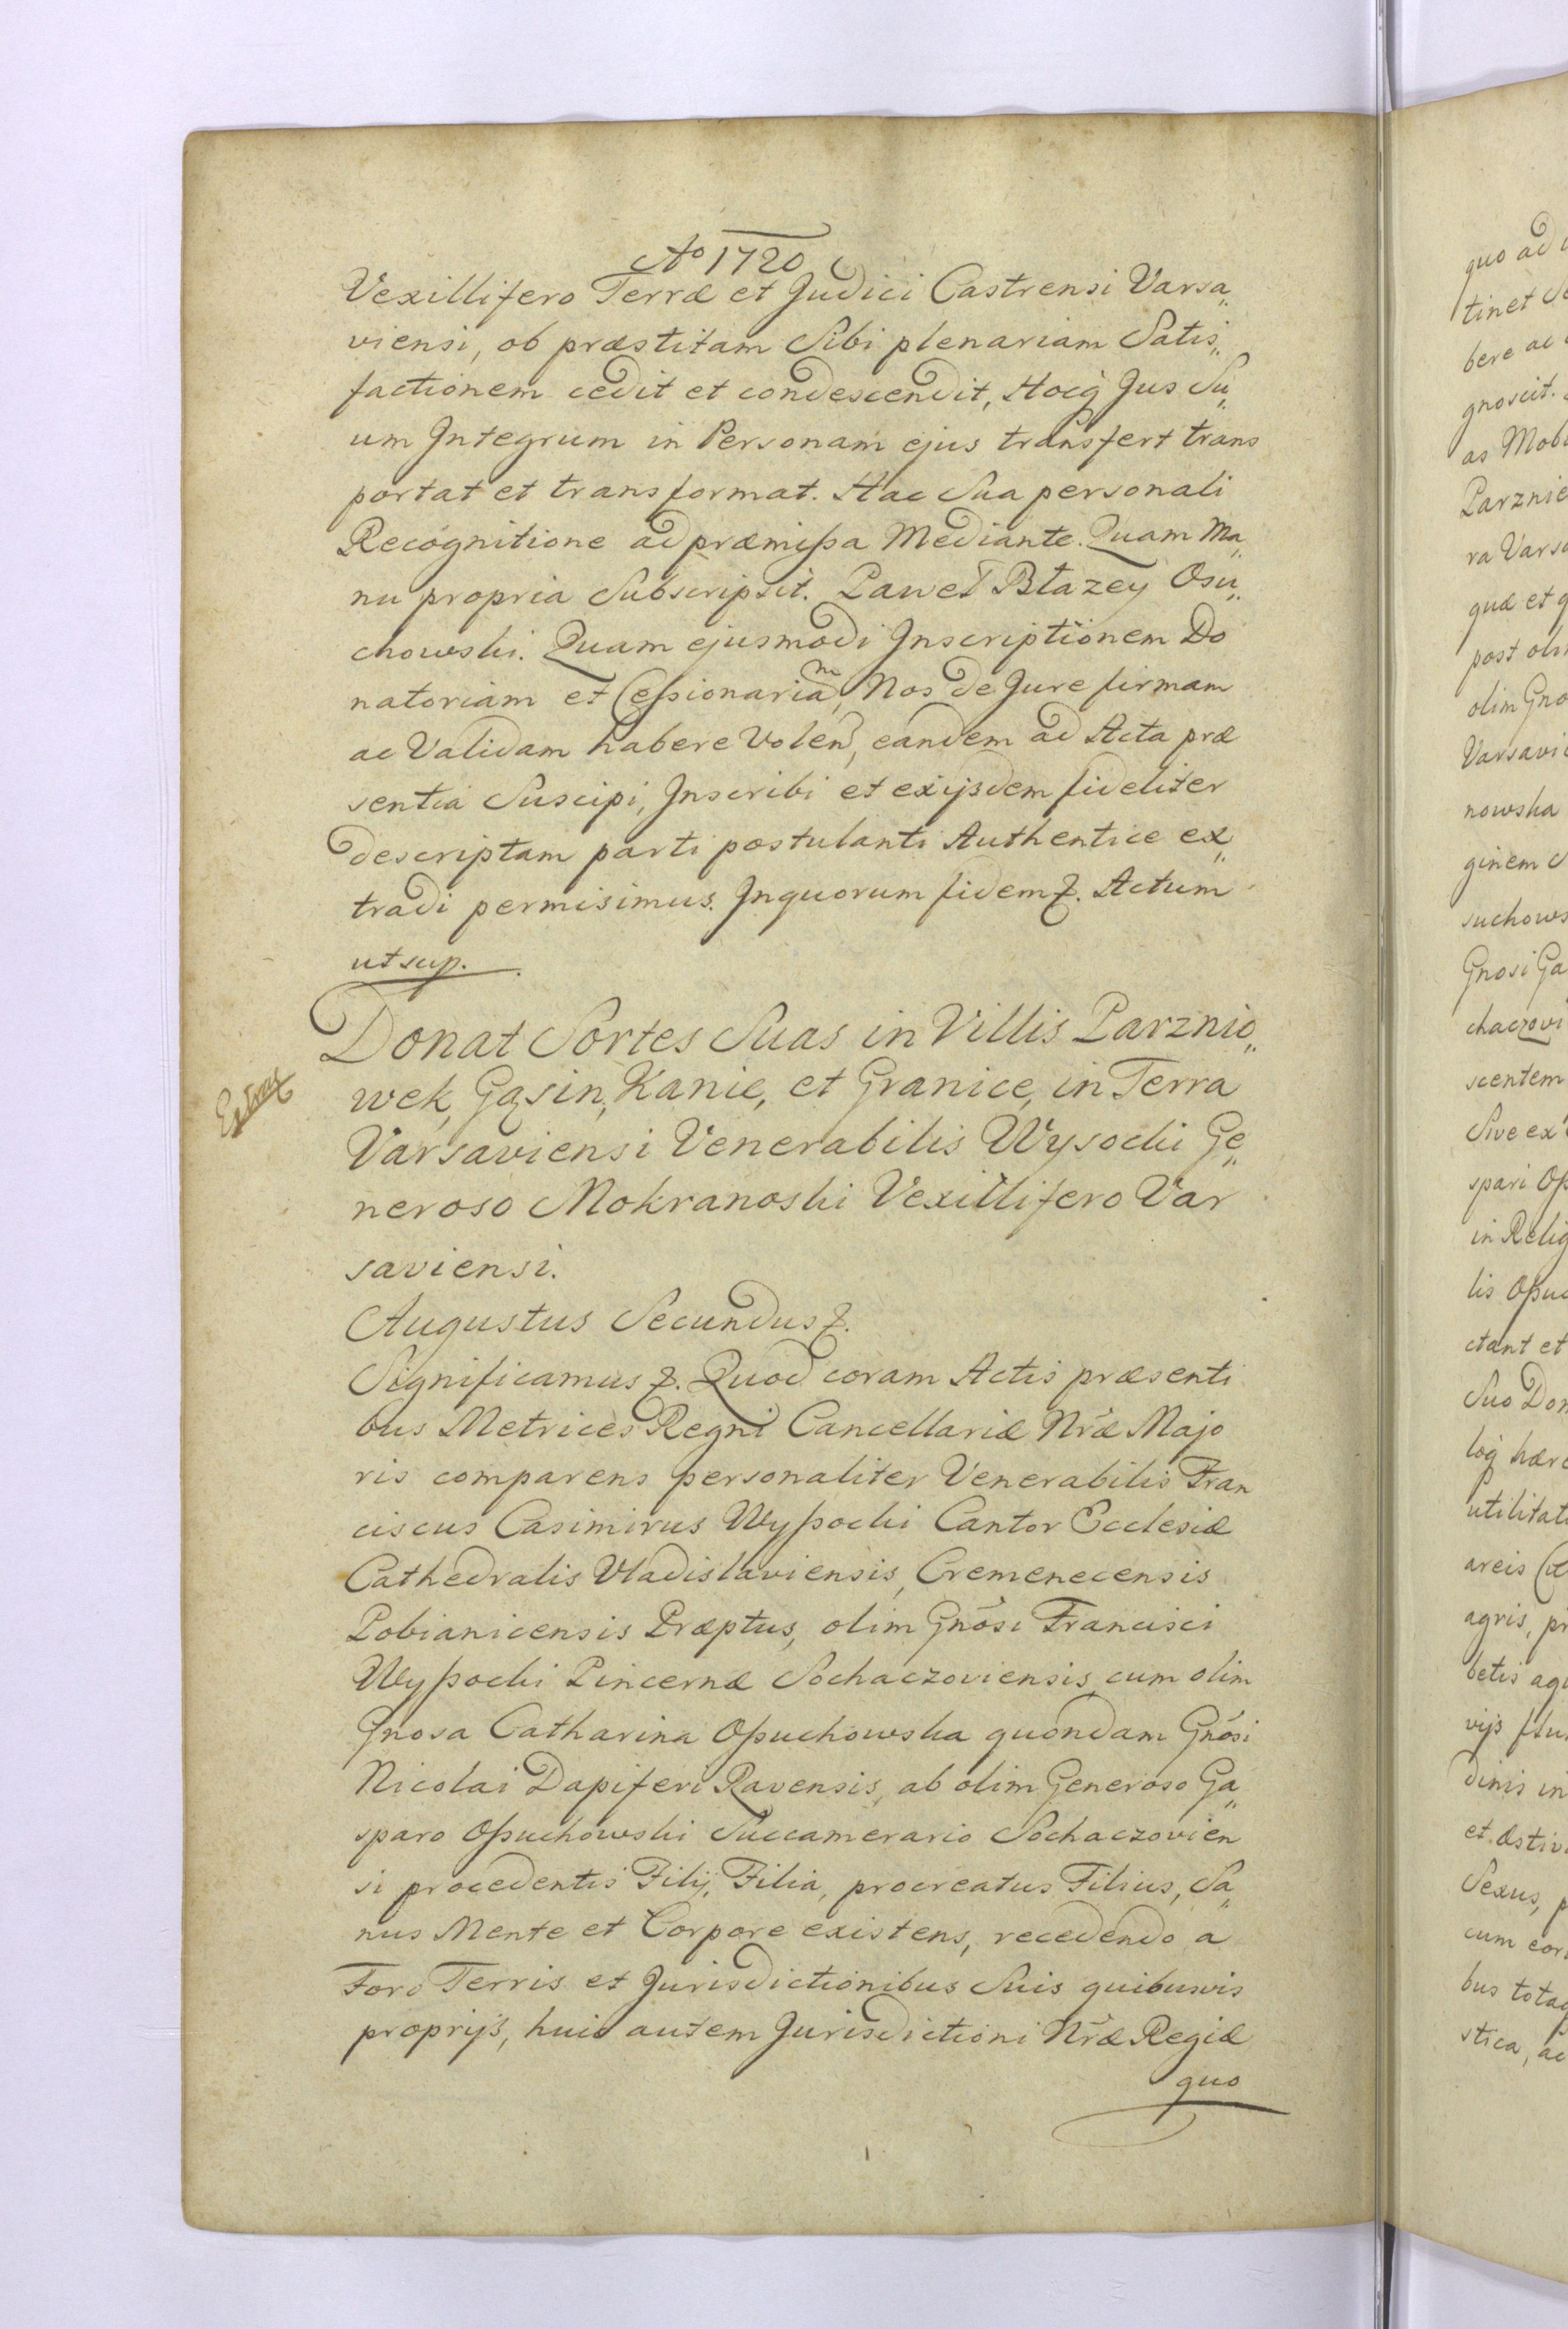 Ao 1720
Vexillifero Terræ et Judici Castrensi Varsa„
viensi, ob præstitam Sibi plenariam Satis„
factionem cedit et condescendit, Hocq Jus Su„
um Integrum in Personam ejus transfert trans
portat et transformat. Hac Sua personali
Recognitione ad præmißa Mediante. Quam Ma„
nu propria Subscripsit. Paweł Błazey Osu„
chowski. Quam ejusmodi Inscriptionem Do
natoriam et Ceßionariam, Nos de Jure firmam
ac Validam habere Volen, eandem ad Acta præ
sentia Suscipi, Inscribi et exijsdem fideliter
descriptam parti postulanti Authentice ex„
tradi permisimus. Inquorum fidem &. Actum
ut sup.
Donat Sortes Suas in Villis Parznie„
wek, Gąsin, Kanie, et Granice, in Terra
Varsaviensi Venerabilis Wysocki Ge„
neroso Mokranoski Vexillifero Var
saviensi.
Augustus Secundus &.
Significamus &. Quod coram Actis præsenti
bus Metrices Regni Cancellariæ Nræ Majo
ris comparens personaliter Venerabilis Fran
ciscus Casimirus Wyßocki Cantor Ecclesiæ
Cathedralis Vladislaviensis, Cremenecensis
Pobianicensis Præptus, olim Gnosi Francisci
Wyßocki Pincernæ Sochaczoviensis cum olim
Gnosa Catharina Oßuchowska quondam Gnosi
Nicolai Dapiferi Ravensis, ab olim Generoso Ga„
sparo Oßuchowski Succamerario Sochaczovien
si procedentis Filij, Filia, procreatus Filius, Sa„
nus Mente et Corpore existens, recedendo a
Foro Terris et Jurisdictionibus Suis quibusvis
proprijs, huic autem Jurisdictioni Nræ Regiæ
quo
quo ad
tinet
bere ac
gnoscit.
as
Parznie
ra Varsa
quæ et
post
olim Gno
Varsavi
nowska
ginem
suchows
Gnosi Ga
chaczovi
scentem
Sive ex
spari Oß
in Relig
lis Oßuc
ctant et
Suo Don
loq hære
utilitat
areis
agris,
betis
vijs
dinis in
et æstiv
Sexus,
cum
bus totaq
stica, ac